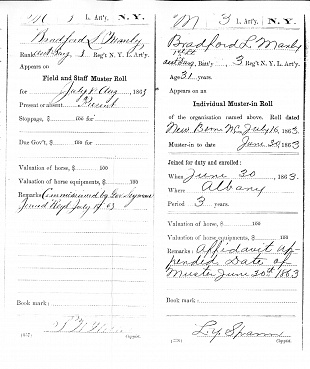 M | 1 | L. Art'y. | N. Y.
Bradford S. Manly
Rank Asst Surg, 1 Reg't N. Y. L. Art'y
Appears on
Field and Staff Muster Roll
for July & Aug, 1863
Present or absent Present
Stoppage, $ 100 for
Due Gov't, $ 100 for
Valuation of horse, $ 100
Valuation of horse equipments, $ 100
Remarks: Commissioned by Gov Seymour
Joined Regt July 17 63
Book mark:
(637) Copyist.
M | 3 | L. Art'y. | N. Y.
Bradford L. Manly
Asst Surg, Bat'y 3 Reg't N. Y. L. Art'y.
Age 31 years.
Appears on an
Individual Muster-in Roll
of the organization named above. Roll dated
New Bern NC July 16, 1863.
Muster-in to date June 30, 1863
Joined for duty and enrolled:
When June 30, 1863.
Where Albany
Period 3 years.
Valuation of horse, $ 100
Valuation of horse equipments, $ 100
Remarks: Affidavit ap-
pended Date of
Muster June 30th 1863
Book mark:
L. Y. Spann
Copyist.